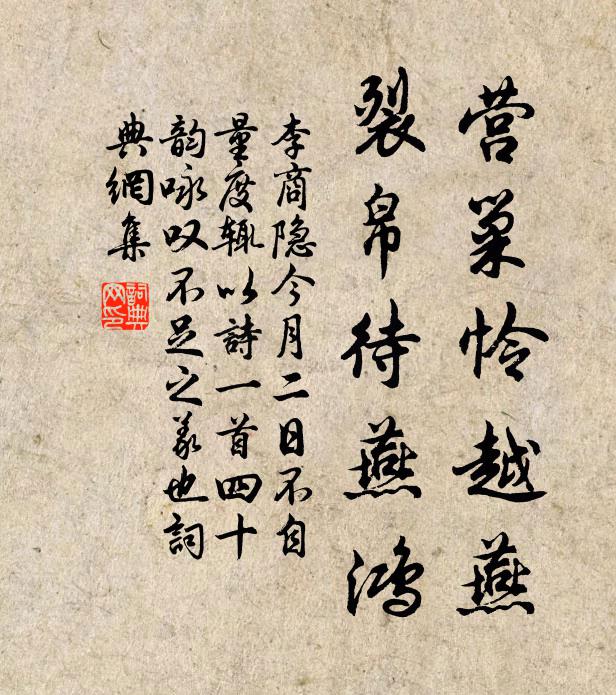 营巢怜越燕
裂帛待燕鸿
李商隐今月二日不自
量度辄以詩一首四十
韵咏叹不足之义也詞
典網集
詞典
网印